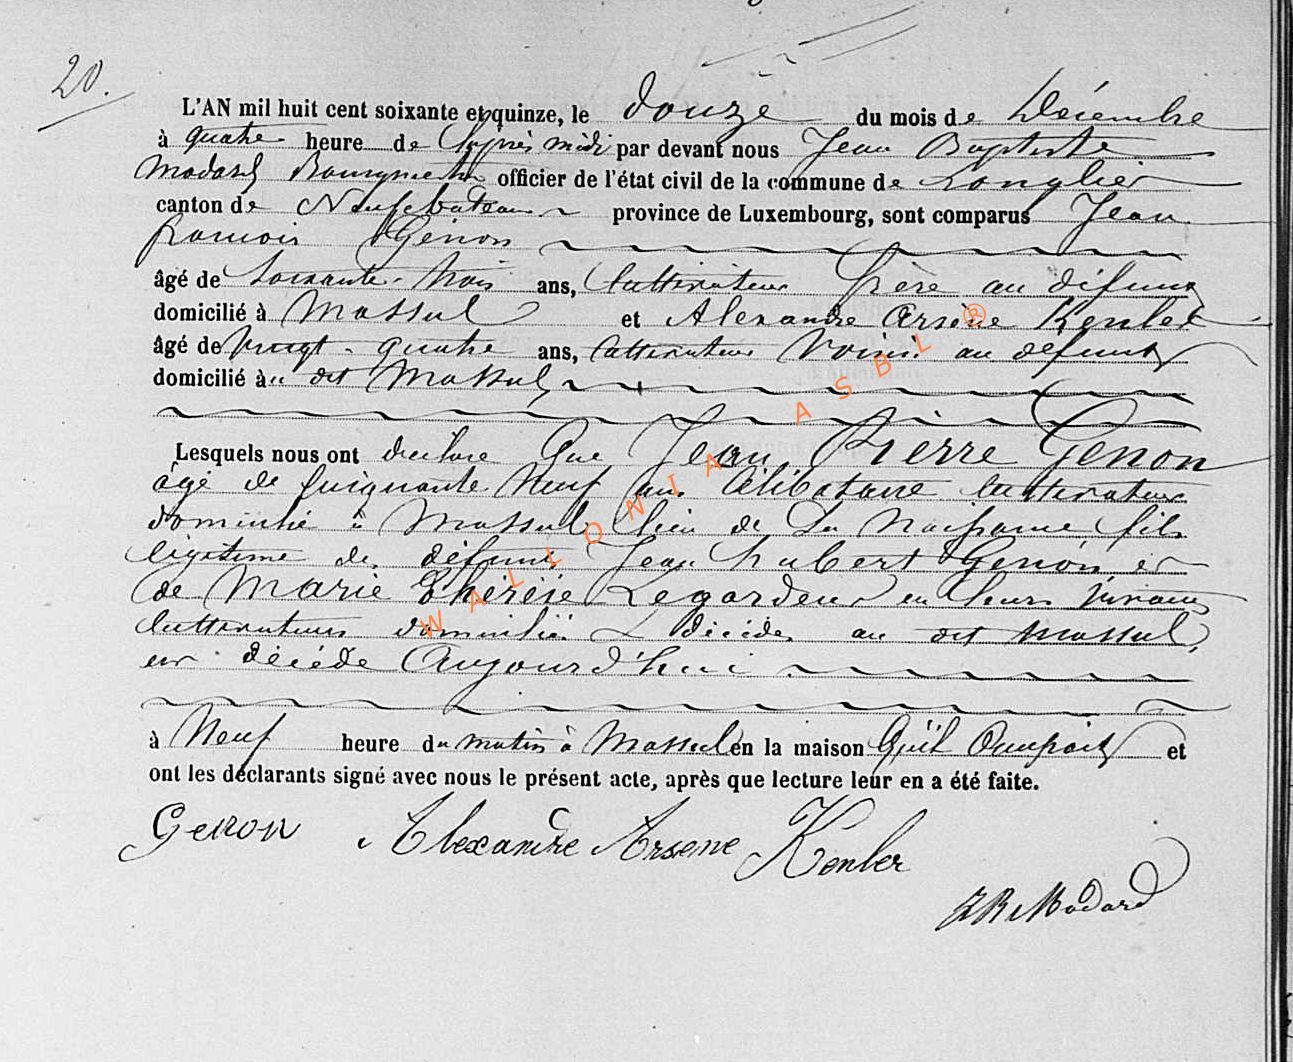 20.
L'AN mil huit cent soixante et quinze, le douze du mois de Décembre
à quatre heure de l'après midi par devant nous Jean Baptiste
Modard Bourgmestre officier de l'état civil de la commune de Longlier
canton de Neufchateau province de Luxembourg, sont comparus Jean
François Genon
âgé de soixante-trois ans, Cultivateur frère au défunt
domicilié à Massul et Alexandre Arsène Kenler
âgé de vingt-quatre ans, Cultivateur Voisin au défunt
domicilié à dit Massul,
Lesquels nous ont déclaré Que Jean Pierre Genon
âgé de cinquante Neuf ans Célibataire cultivateur
domicilié à Massul lieu de sa naissance fils
légitime de défunt Jean hubert Genon et
de Marie Thérèse Legardeur en leurs vivants
cultivateurs domiciliés & décédés au dit Massul,
est décédé Aujourd'hui
à Neuf heure du matin à Massul en la maison Qu'il Occupait et
ont les déclarants signé avec nous le présent acte, après que lecture leur en a été faite.
Genon Alexandre Arsene Kenler
JB Modard
WALLONIA ASBL ®